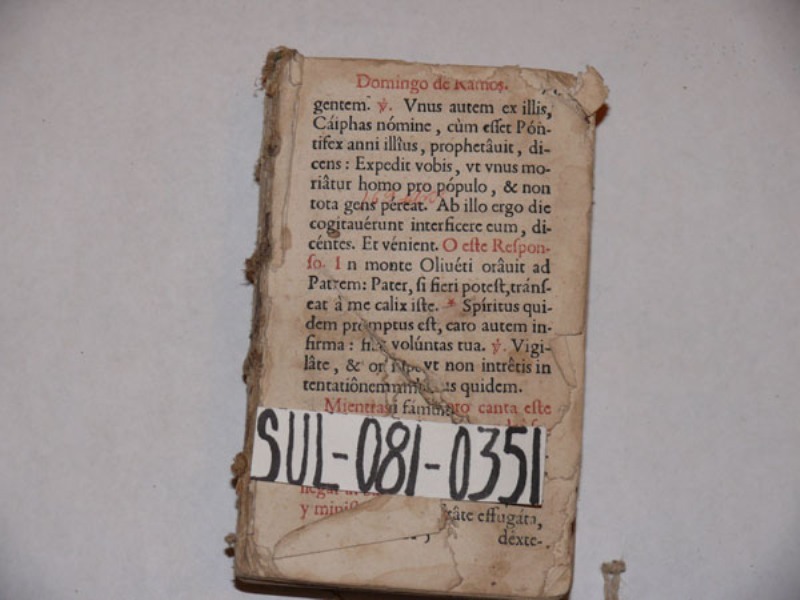 Domingo de Ramos.
gentem. ℣. Vnus autem ex illis,
Cáiphas nómine, cùm eſſet Pón-
tifex anni illîus, prophetâuit, di-
cens: Expedit vobis, vt vnus mo-
riâtur homo pro pópulo, & non
tota gens pereat. Ab illo ergo die
cogitauérunt interficere eum, di-
céntes. Et vénient. O eſte Reſpon-
ſo. In monte Oliuéti orâuit ad
Patrem: Pater, ſi fieri poteſt, tránſ-
eat à me calix iſte. * Spíritus qui-
dem promptus eſt, caro autem in-
firma: volúntas tua. ℣. Vigi-
lâte, & vt non intrêtis in
tentatiônem quidem.
Mientras canta eſte
SUL-081-0351
y
effugáta,
déxte-